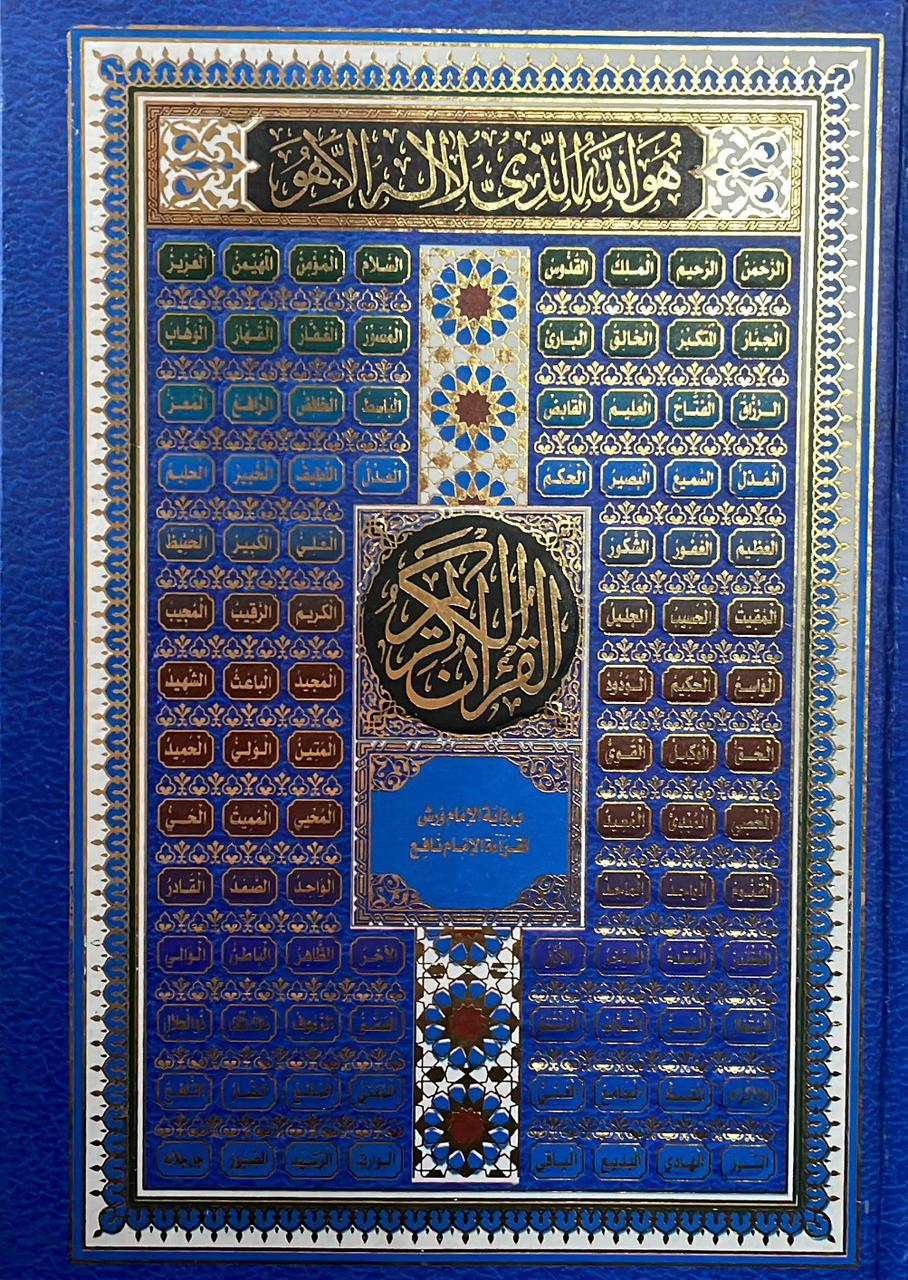 هو الله الذي لا إله إلا هو
الرحمن الرحيم الملك القدوس السلام المؤمن المهيمن العزيز
الجبار المتكبر الخالق البارئ المصور الغفار القهار الوهاب
الرزاق الفتاح العليم القابض الباسط الخافض الرافع المعز
المذل السميع البصير الحكم العدل اللطيف الخبير الحليم
العظيم الغفور الشكور العلي الكبير الحفيظ
المقيت الحسيب الجليل الكريم الرقيب المجيب
الواسع الحكيم الودود المجيد الباعث الشهيد
الحق الوكيل القوي المتين الولي الحميد
المحصي المبدئ المعيد المحيي المميت الحي
القيوم الواجد الماجد الواحد الصمد القادر
المقتدر المقدم المؤخر الأول الآخر الظاهر الباطن الوالي
المتعال البر التواب المنتقم العفو الرؤوف مالك الملك ذو الجلال
والإكرام المقسط الجامع الغني المغني المانع الضار النافع
النور الهادي البديع الباقي الوارث الرشيد الصبور جل جلاله
القرءان الكريم
برواية الإمام ورش
لقراءة الإمام نافع